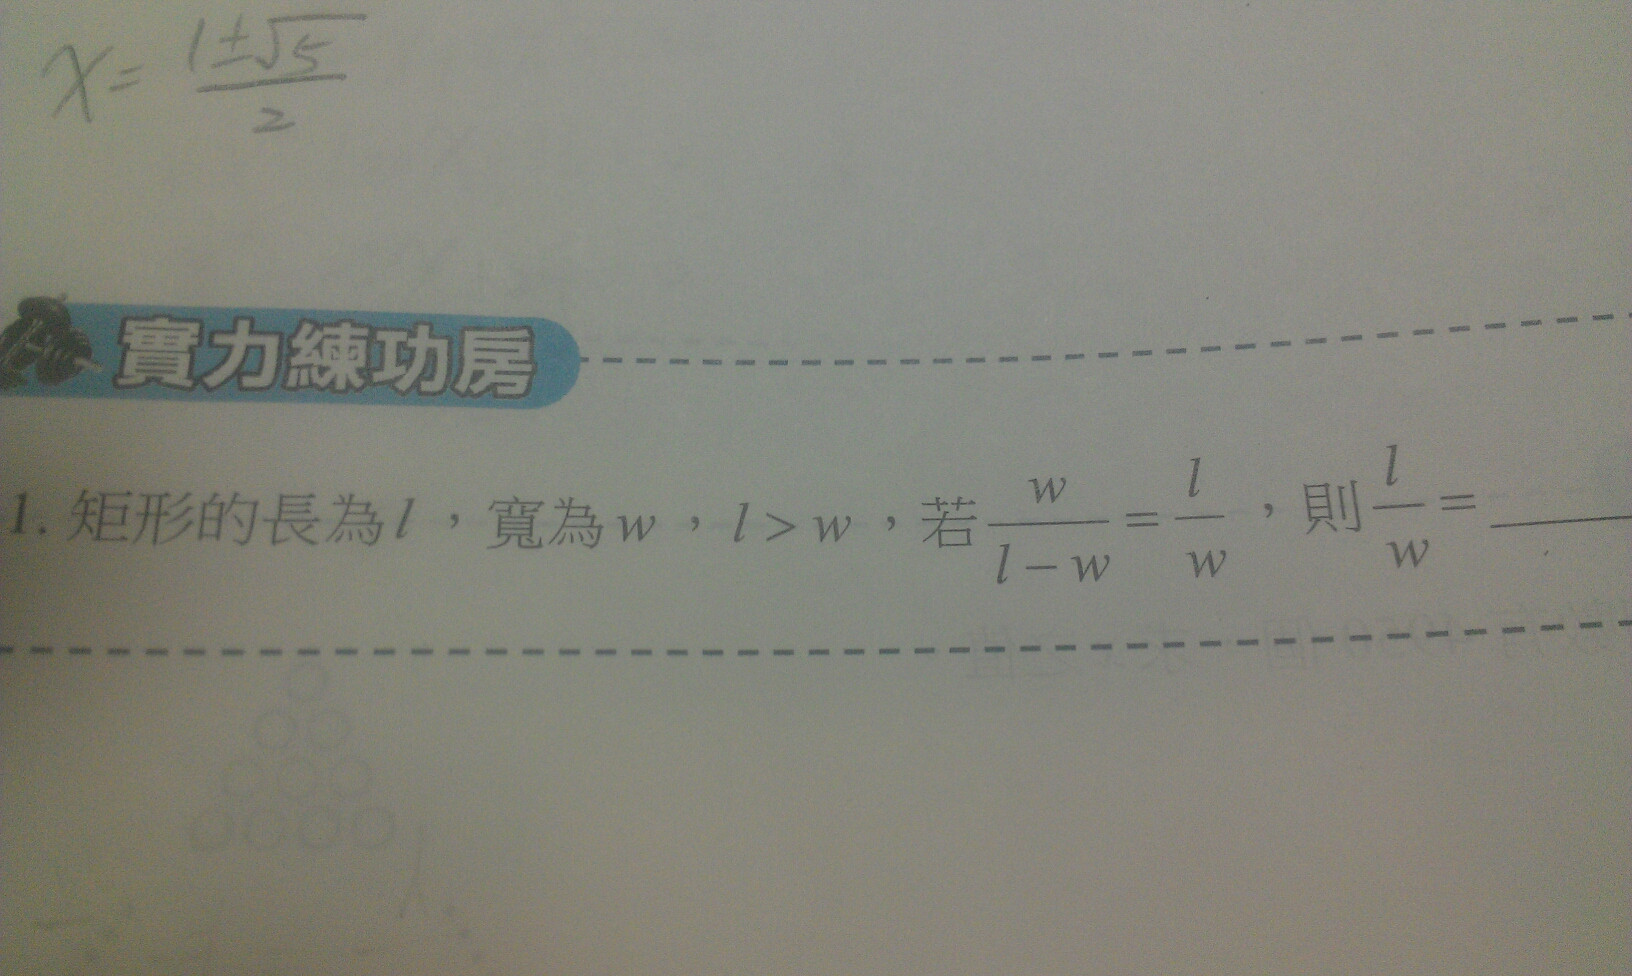 x = (1±√5)/2
實力練功房
1. 矩形的長為 l，寬為 w，l > w，若 w/(l−w) = l/w，則 l/w = ______